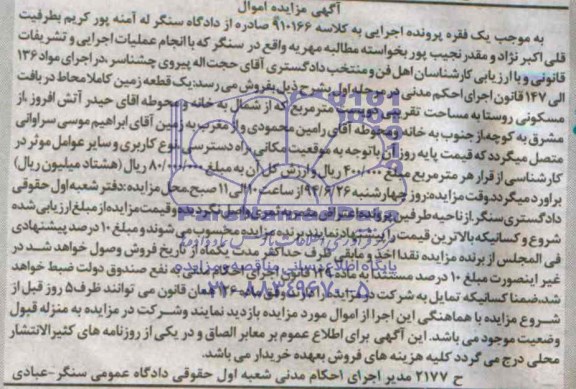 آگهی مزایده اموال
به موجب یک فقره پرونده اجرایی به کلاسه ۹۱۰۱۶۶ صادره از دادگاه سنگر له آمنه پور کریم بطرفیت
قلی اکبر نژاد و مقدر نجیب پور بخواسته مطالبه مهریه واقع در سنگر که با انجام عملیات اجرایی و تشریفات
قانونی و با ارزیابی کارشناسان اهل فن و منتخب دادگستری آقای حجت اله پیروی چشناسر، در اجرای مواد ۱۳۶
الی ۱۴۷ قانون اجرای احکام مدنی در مرحله اول بشرح ذیل بفروش می رسد: یک قطعه زمین کاملا محاط در بافت
مسکونی روستا به مساحت تقریبی دویست مترمربع که از شمال به خانه و محوطه اقای حیدر آتش افروز ،از
مشرق به کوچه از جنوب به خانه و محوطه آقای رامین محمودی و از مغرب به زمین آقای ابراهیم موسی سراوانی
متصل میگردد که قیمت پایه روز آن با توجه به موقعیت مکانی راه دسترسی نوع کاربری و سایر عوامل موثر در
کارشناسی از قرار هر مترمربع مبلغ ۴۰۰/۰۰۰ ریال و ارزش کل آن به مبلغ ۸۰/۰۰۰/۰۰۰ ریال (هشتاد میلیون ریال)
برآورد میگردد.وقت مزایده:روز چهارشنبه ۹۴/۶/۲۶ از ساعت ۱۰ الی ۱۱ صبح محل مزایده:دفتر شعبه اول حقوقی
دادگستری سنگر.از ناحیه طرفین پرونده اعتراض واصل نگردیده و قیمت مزایده از مبلغ ارزیابی شده
شروع و کسانیکه بالاترین قیمت را پیشنهاد نمایند برنده مزایده محسوب می شوند و مبلغ ۱۰ درصد پیشنهادی
فی المجلس از برنده مزایده نقدا اخذ و مابقی ظرف حداکثر مدت یکماه از تاریخ فروش وصول خواهد شد در
غیر اینصورت مبلغ ۱۰ درصد مستندا به ماده ۱۲۹ قانون اجرای احکام مدنی به نفع صندوق دولت ضبط خواهد
شد،ضمنا کسانیکه تمایل به شرکت در مزایده را دارند وفق ماده ۱۲۶ همان قانون می توانند ظرف ۵ روز قبل از
شروع مزایده با هماهنگی این اجرا از اموال مورد مزایده بازدید نمایند وشرکت در مزایده به منزله قبول
وضعیت موجود می باشد. این آگهی برای اطلاع عموم بر معابر الصاق و در یکی از روزنامه های کثیرالانتشار
محلی درج می گردد کلیه هزینه های فروش بعهده خریدار می باشد.
ح ۲۱۷۷ مدیر اجرای احکام مدنی شعبه اول حقوقی دادگاه عمومی سنگر-عبادی
پایگاه اطلاع رسانی مناقصه و مزایده
۰۲۱-۸۸۳۴۹۶۷۰-۵